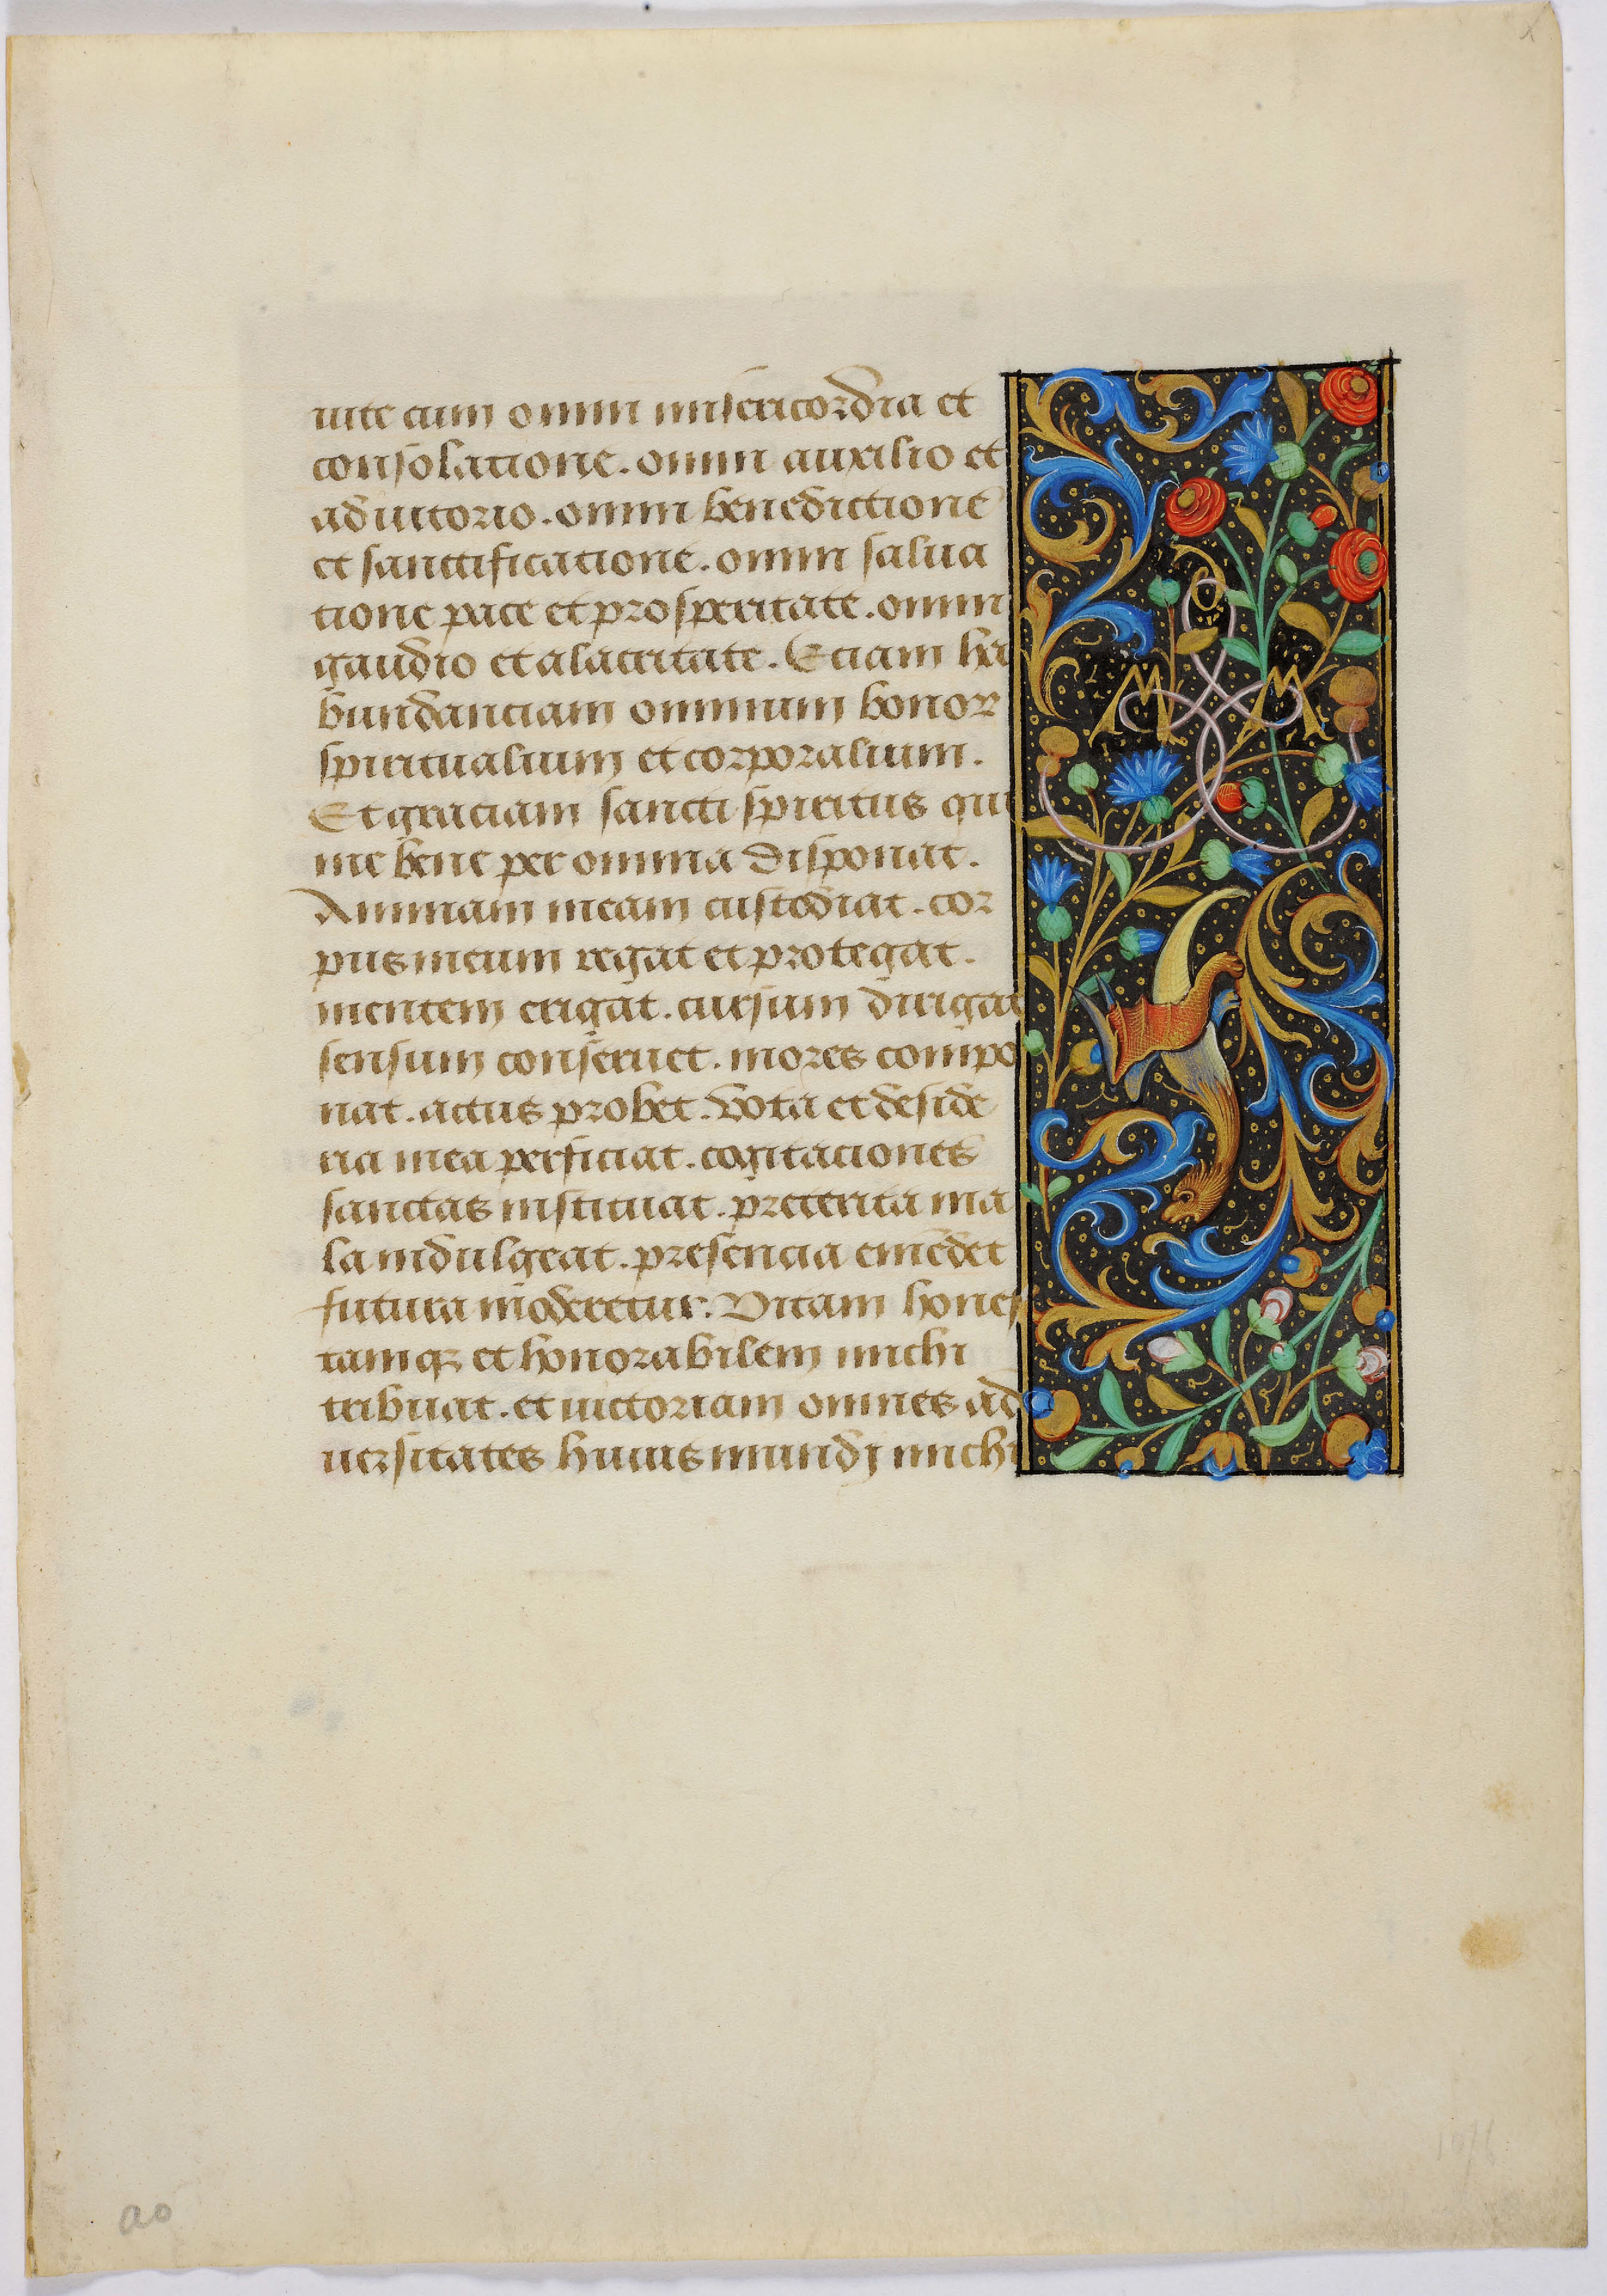 uite cum omni misericordia et
consolatione. omni auxilio et
adiutorio. omni benedictione
et sanctificatione. omni salua
tione pace et prosperitate. omni
gaudio et alacritate. Eciam ha
bundanciam omnium bonoꝝ
spiritualium et corporalium.
Et graciam sancti spiritus qui
me bene per omnia disponat.
Animam meam custodiat. cor
pus meum regat et protegat.
mentem erigat. cursum dirigat
sensum conseruet. mores compo
nat. actus probet. Vota et deside
ria mea perficiat. cogitaciones
sanctas instituat. preterita ma
la indulgeat. presencia emēdet
futura moderetur. Vitam hones
tamqꝫ et honorabilem michi
tribuat. et uictoriam omnes ad
uersitates huius mundj michi
M M
ao